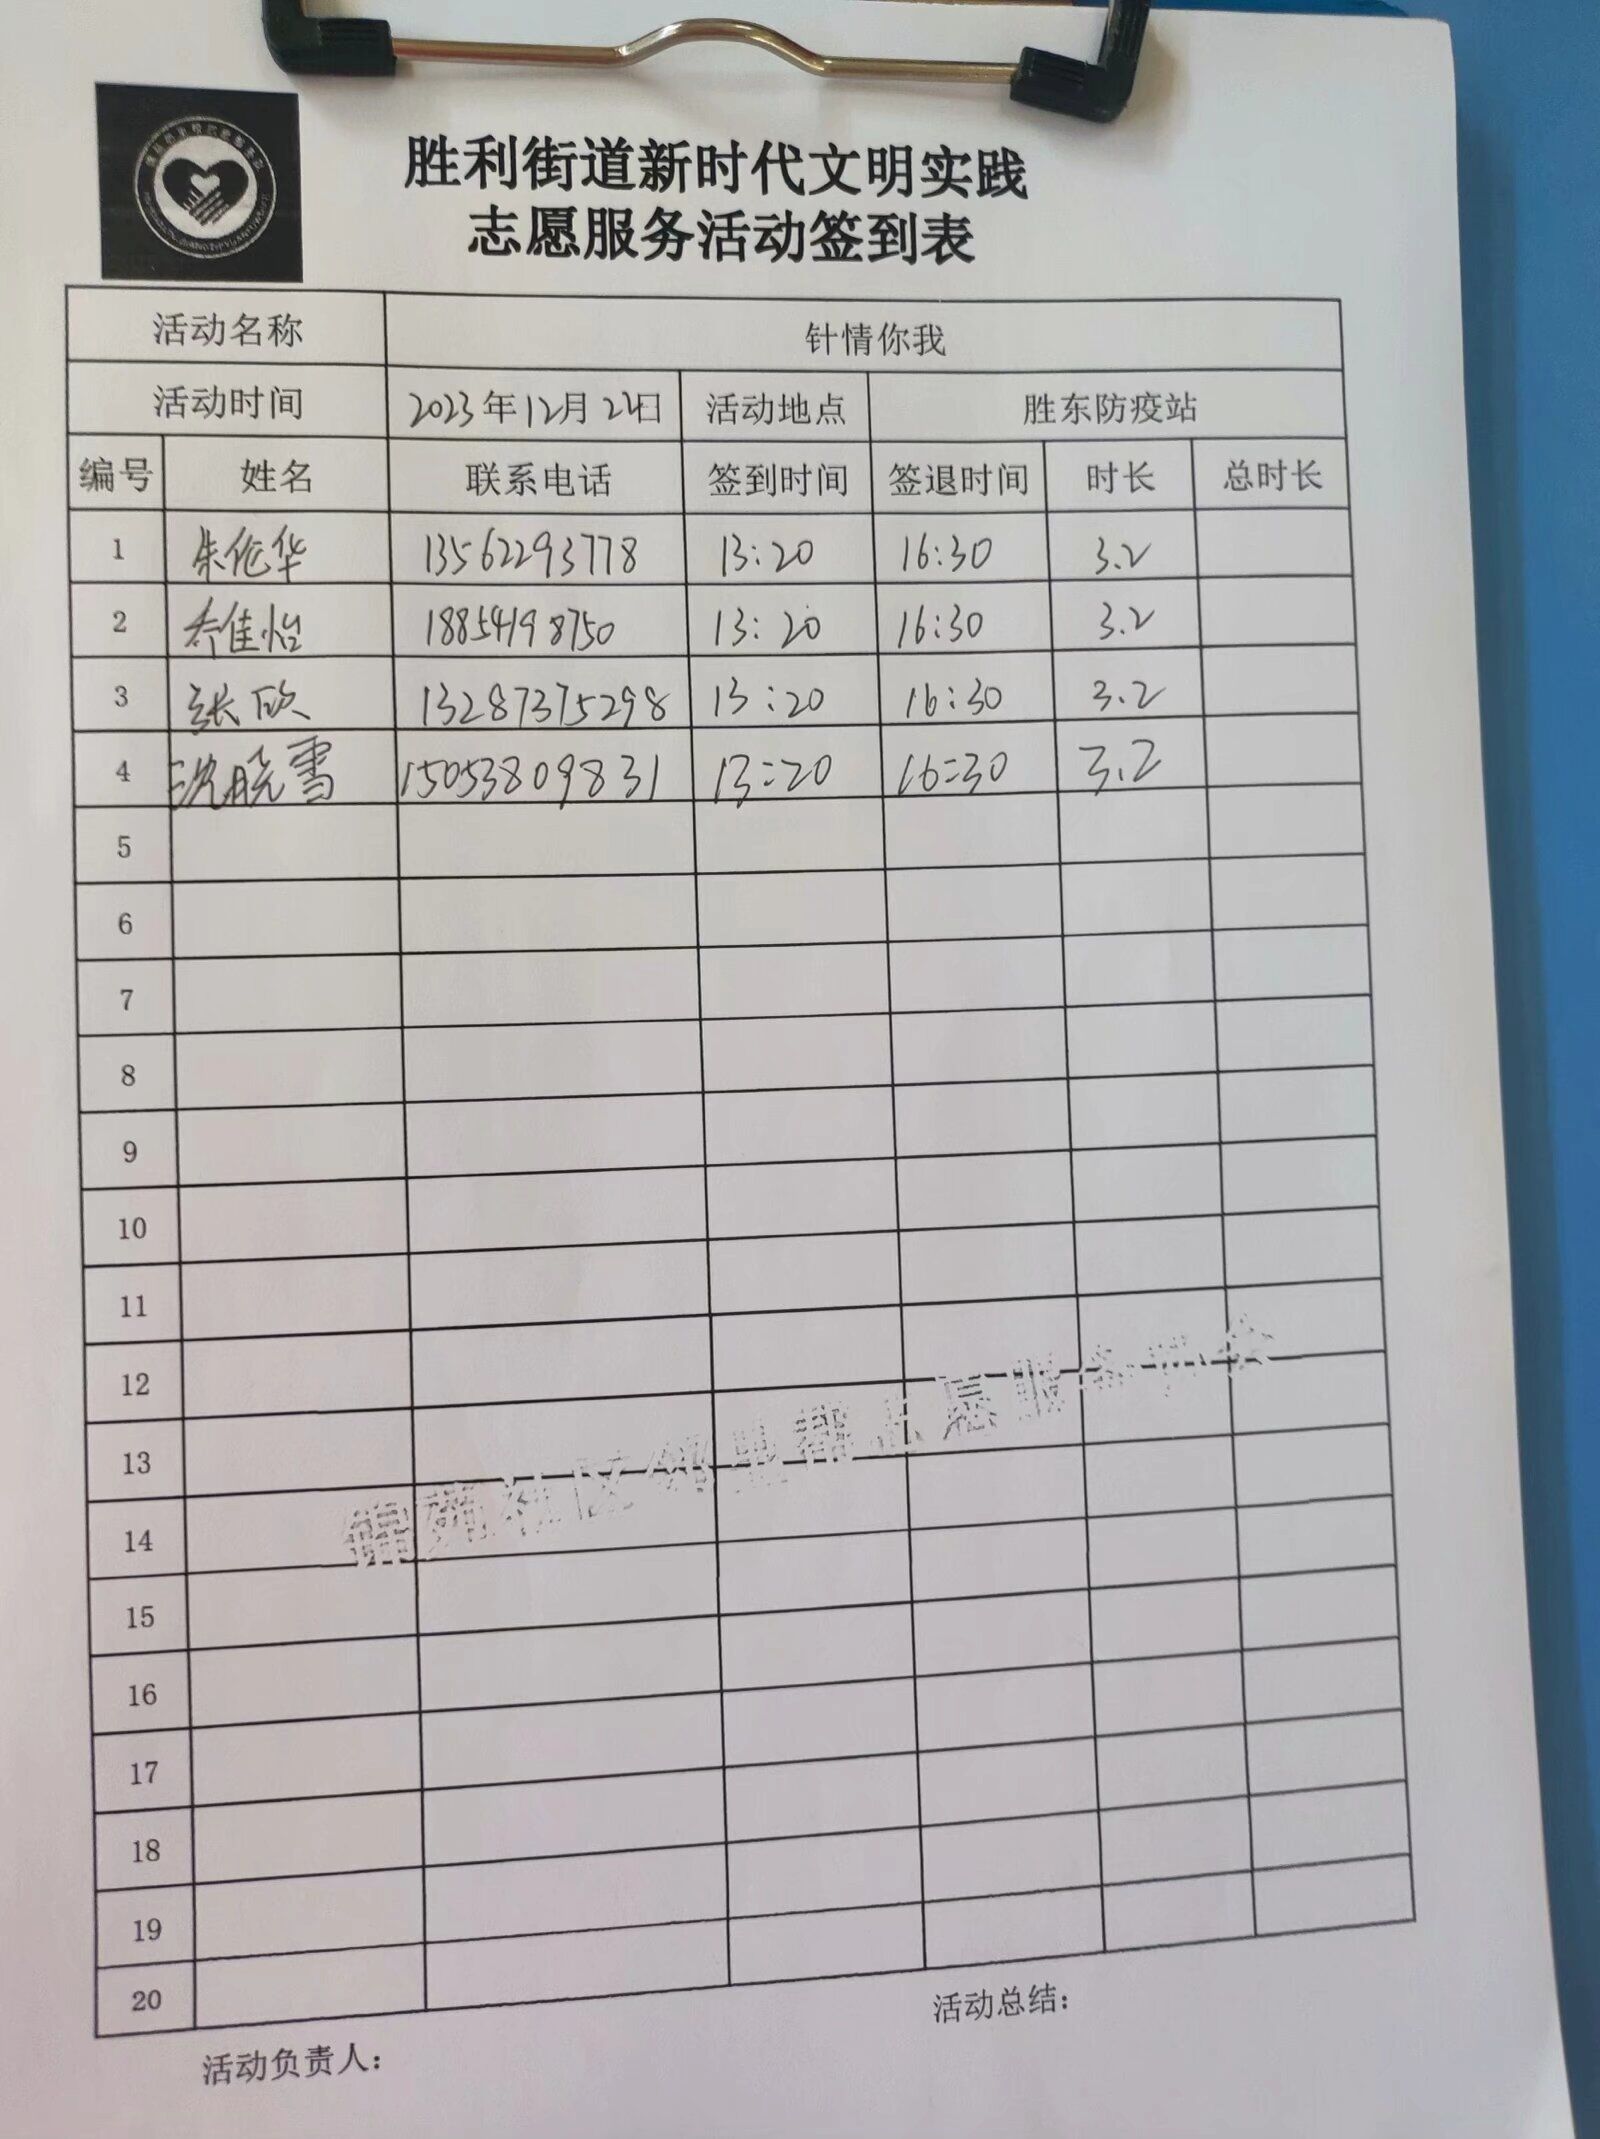 胜利街道新时代文明实践
志愿服务活动签到表
活动名称 针情你我
活动时间 2023年12月22日 活动地点 胜东防疫站
编号 姓名 联系电话 签到时间 签退时间 时长 总时长
1 朱伦华 13562293778 13:20 16:30 3.2
2 乔佳怡 18854198750 13:20 16:30 3.2
3 张欣 13287375298 13:20 16:30 3.2
4 沈晓雪 15053809831 13:20 16:30 3.2
5
6
7
8
9
10
11
12
13
14
15
16
17
18
19
20
锦苑社区邻里帮志愿服务协会
活动总结：
活动负责人：